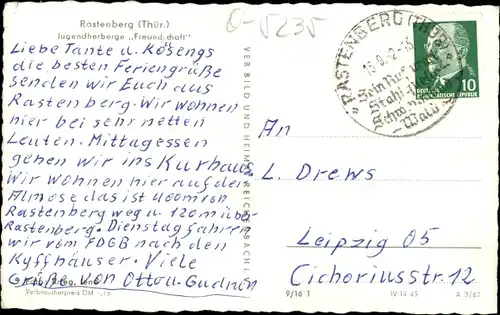 Rastenberg (Thür.)
Jugendherberge „Freundschaft"
O-5235
Liebe Tante u. Kösengs
die besten Feriengrüße
senden wir Euch aus
Rastenberg. Wir wohnen
hier bei sehr netten
Leuten. Mittagessen
gehen wir ins Kurhaus.
Wir wohnen hier auf der
Almose das ist 400m von
Rastenberg weg u. 120m über
Rastenberg. Dienstag fahren
wir vom FDGB nach den
Kyffhäuser. Viele
Grüße von Otto u. Gudrun
Verbraucherpreis DM
VEB BILD UND HEIMAT REICHENBACH I. V.
RASTENBERG (THÜR.)
Stahl
Wald
10
DEUTSCHE DEMOKRATISCHE REPUBLIK
An
L. Drews
Leipzig O5
Cichoriusstr. 12
9/16 1 IV-14-45 A 3/62